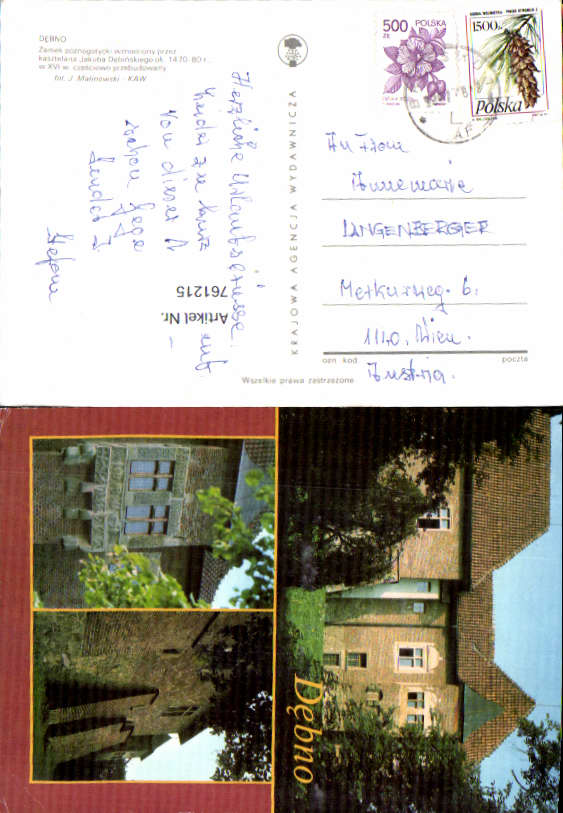 DĘBNO
Zamek późnogotycki wzniesiony przez
kasztelana Jakuba Dębińskiego ok. 1470-80 r.,
w XVI w. częściowo przebudowany
fot. J. Malinowski - KAW
500 ZŁ POLSKA
1500 ZŁ
Polska
KRAJOWA AGENCJA WYDAWNICZA
Herzliche Urlaubsgrüsse
von dieser
Artikel Nr.
761215
An Frau
Annemarie
LANGENBERGER
Merkurweg. 6.
1140. Wien.
Austria.
odn kod
poczta
Wszelkie prawa zastrzeżone
Dębno